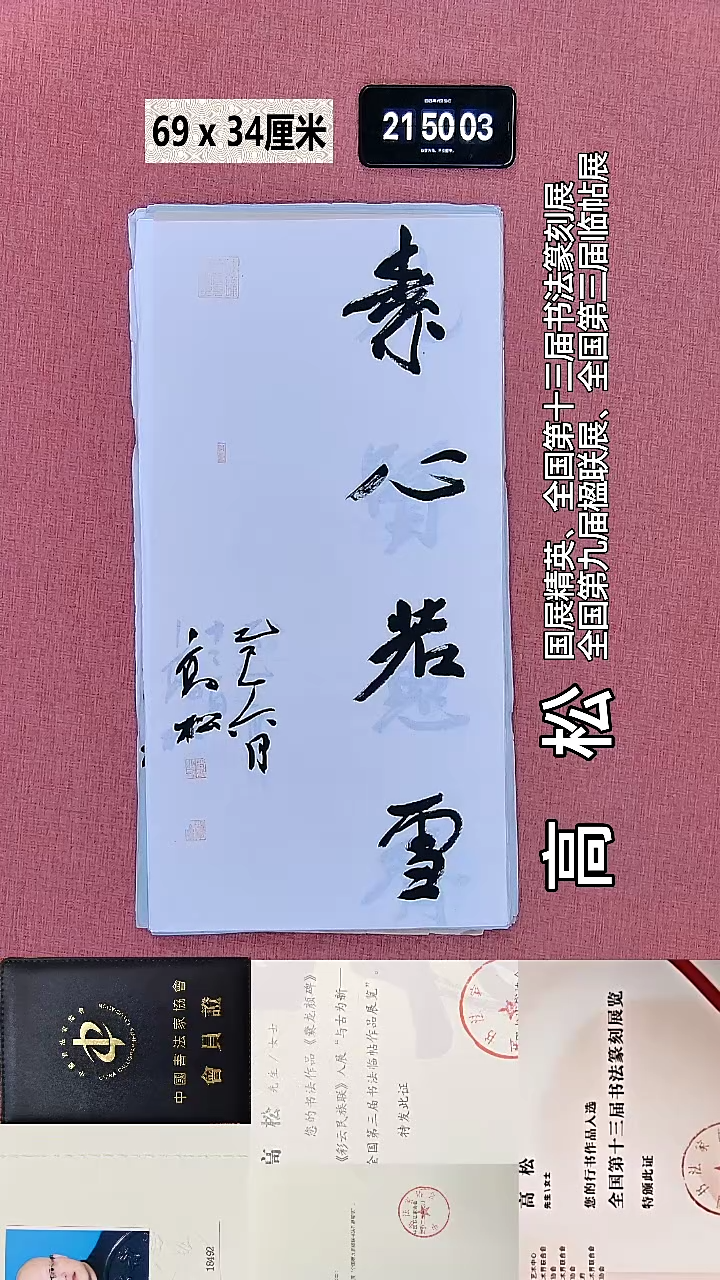 69 x 34厘米
21 50 03
素心若雪
乙巳六月
高松
国展精英、全国第十三届书法篆刻展
全国第九届楹联展、全国第三届临帖展
高 松
中國書法家協會
會員證
高 松 先生/女士
您的书法作品《爨龙颜碑》
《彩云民族联》入展“与古为新——
全国第三届书法临帖作品展览”。
特发此证
高 松
先生\女士
您的行书作品入选
全国第十三届书法篆刻展览
特颁此证
18492